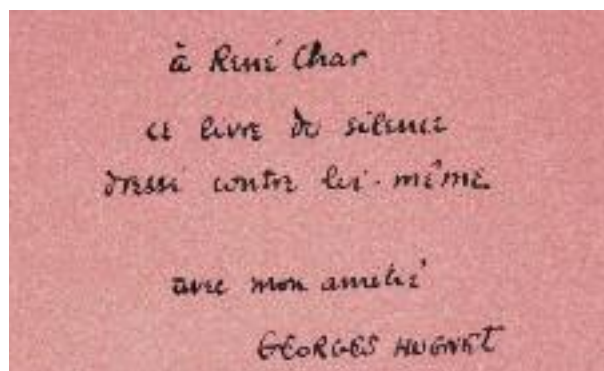 à René Char
ce livre du silence
dressé contre lui-même
avec mon amitié
GEORGES HUGNET